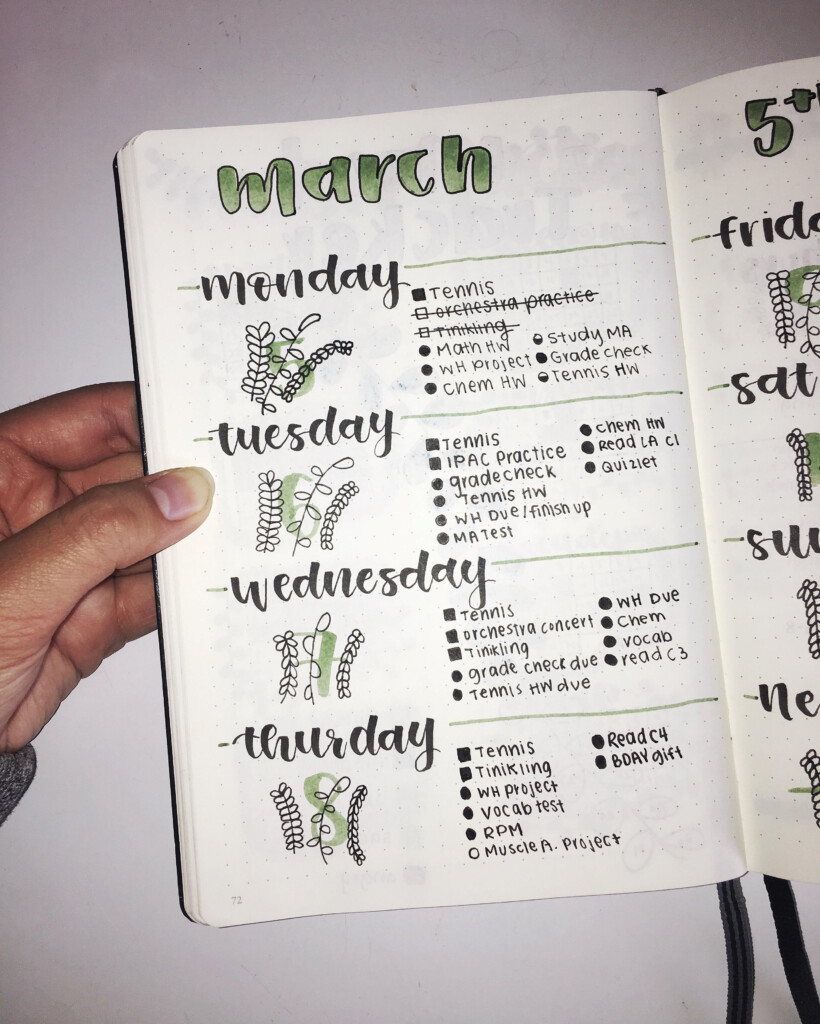 march
monday
5
Tennis
orchestra practice
Tinikling
Math HW
WH project
Chem HW
Study MA
Grade check
Tennis HW
tuesday
6
Tennis
IPAC Practice
gradecheck
Tennis HW
WH Due/finish up
MA Test
chem HW
Read LA C1
Quizlet
wednesday
7
Tennis
orchestra concert
Tinikling
grade check due
Tennis HW due
WH Due
Chem
vocab
read C3
thurday
8
Tennis
Tinikling
WH project
vocab test
RPM
Muscle A. Project
Read C4
BDAY gift
72
5t
frid
sat
su
ne